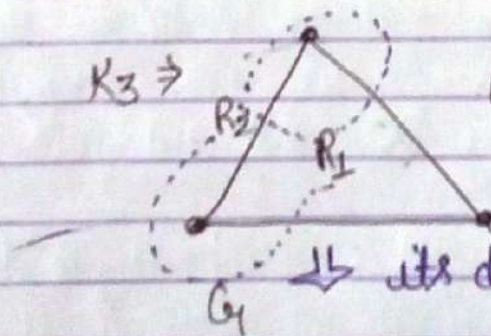 K3 ⇒
R2
R1
G
⇓ its